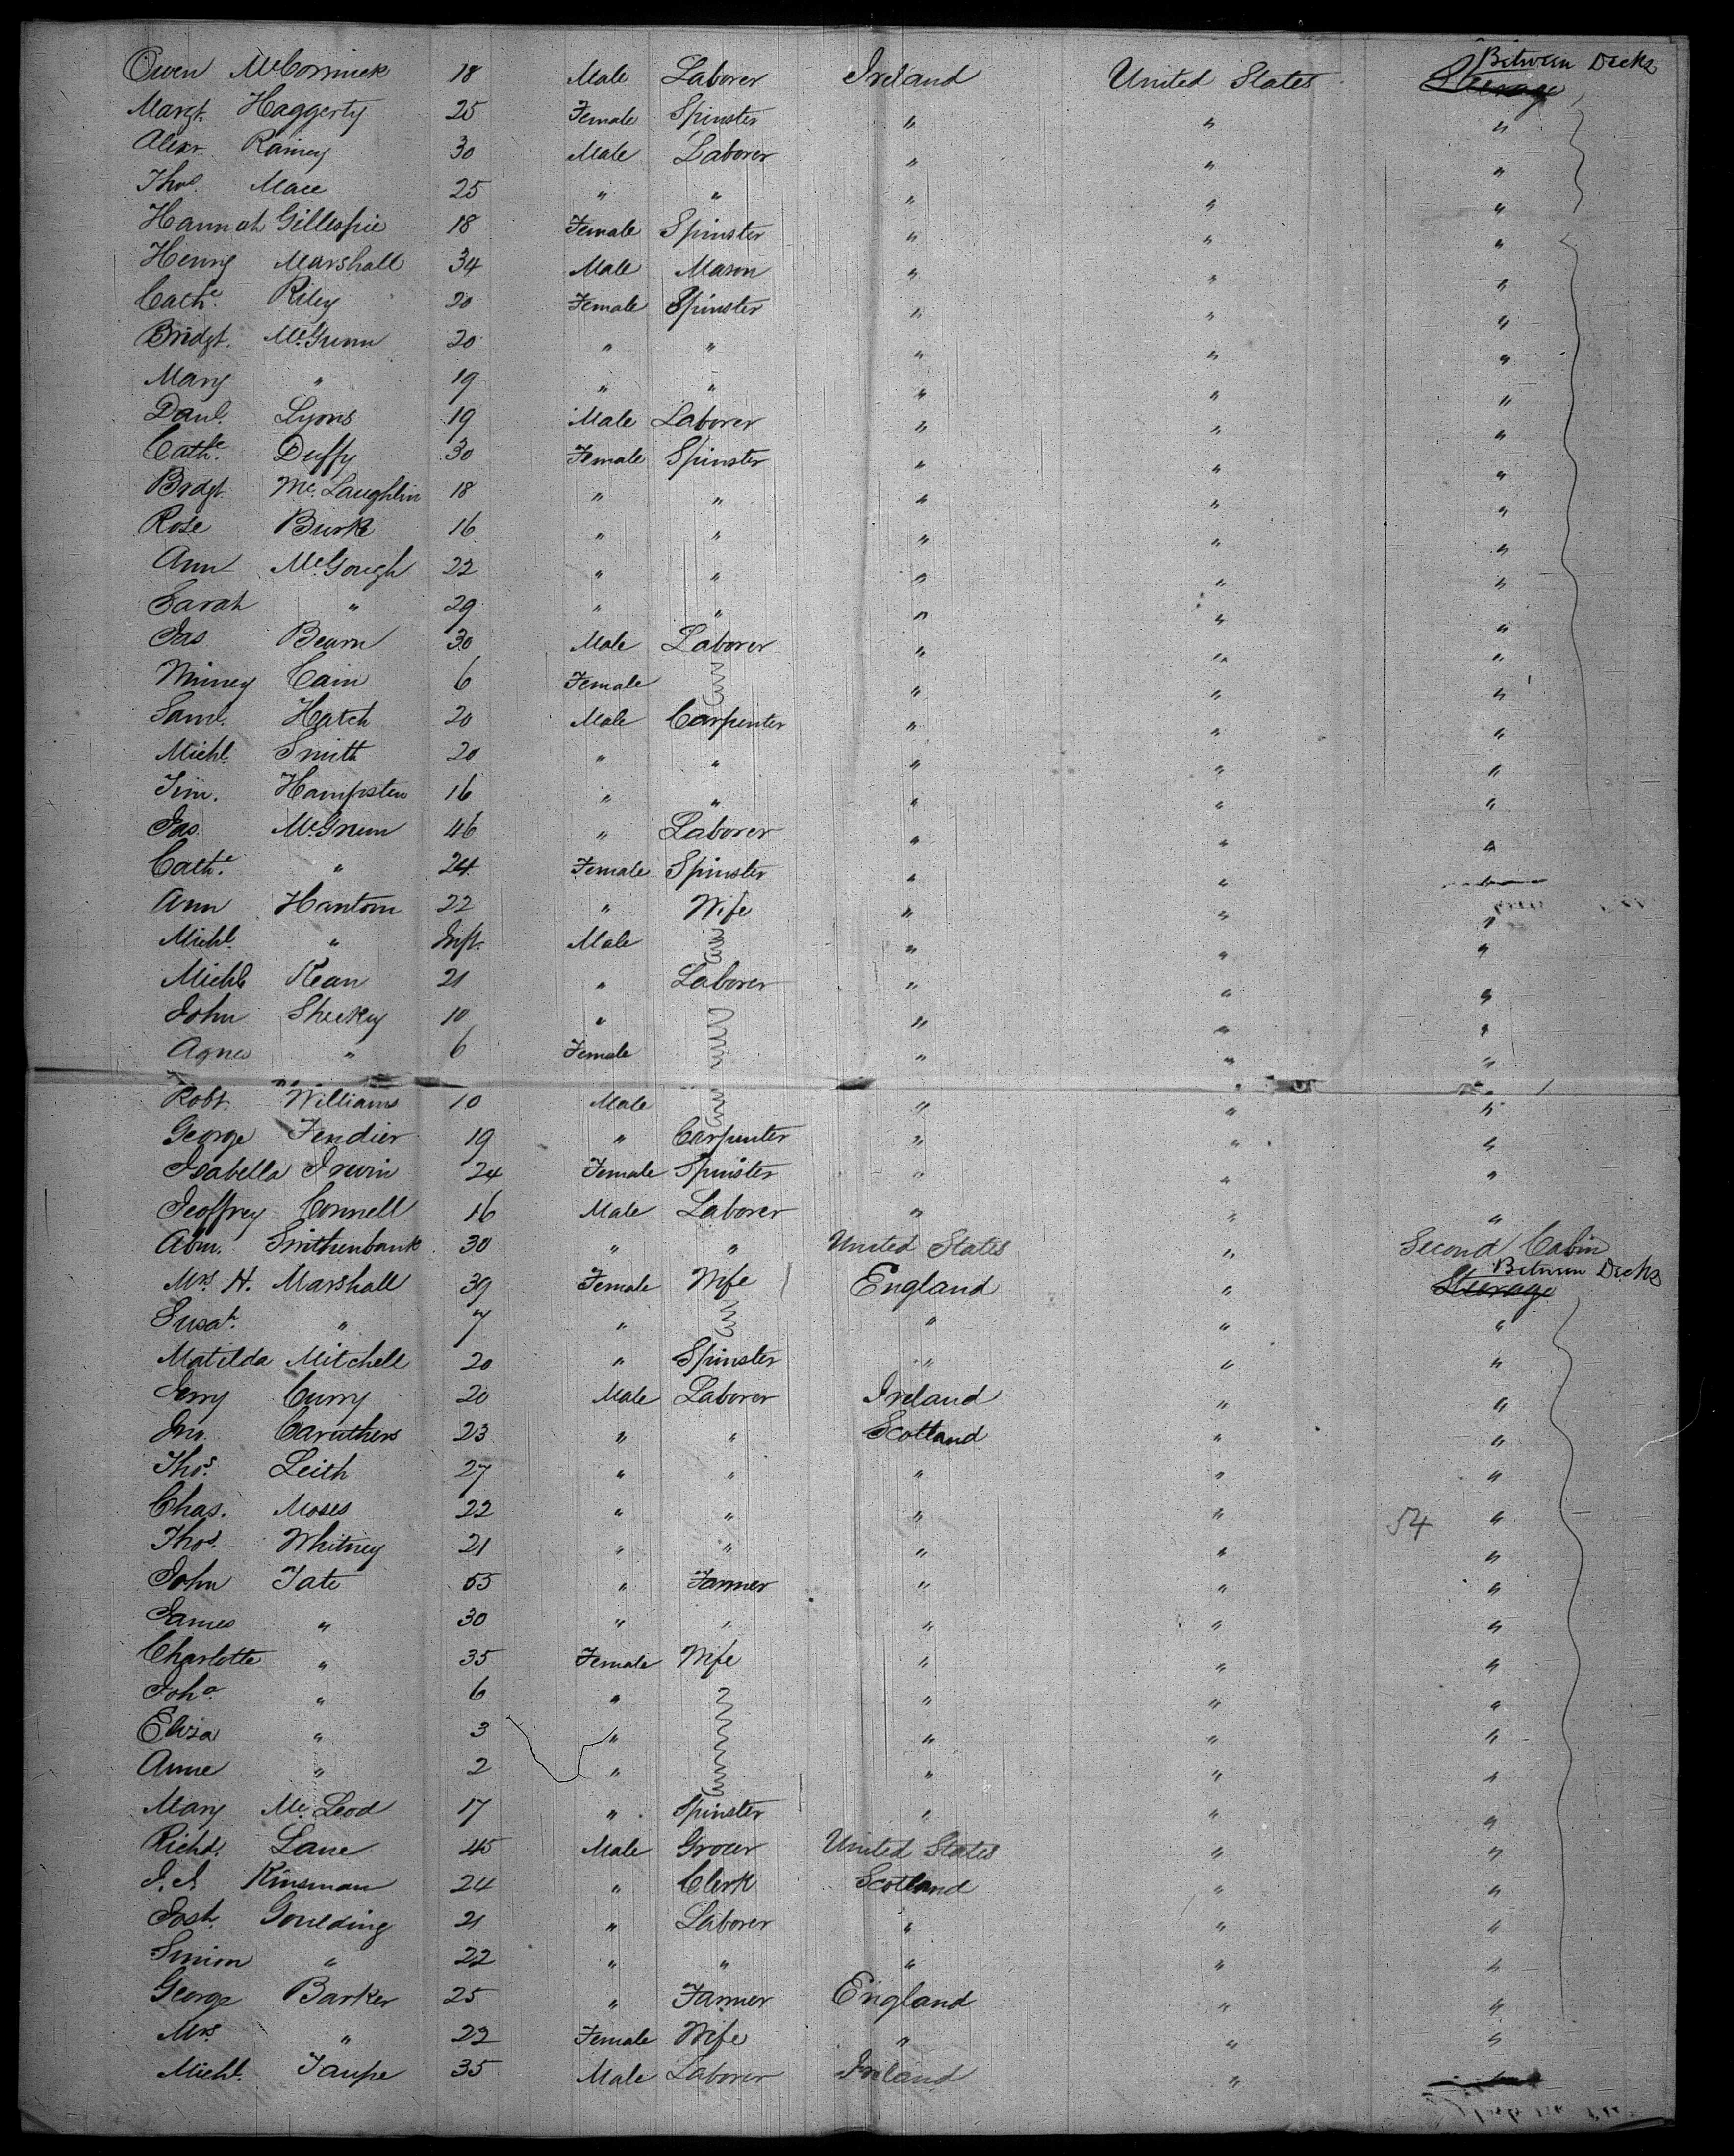 Owen McCormick 18 Male Laborer Ireland United States Steerage Between Decks
Margt. Haggerty 25 Female Spinster " " "
Alexr. Rainey 30 Male Laborer " " "
Thos. Mace 25 " " " " "
Hannah Gillespie 18 Female Spinster " " "
Henry Marshall 34 Male Mason " " "
Cathe. Riley 20 Female Spinster " " "
Bridgt. McGunn 20 " " " " "
Mary " 19 " " " " "
Danl. Lyons 19 Male Laborer " " "
Cathe. Duffy 30 Female Spinster " " "
Brdgt. McLaughlin 18 " " " " "
Rose Burke 16 " " " " "
Ann McGough 22 " " " " "
Sarah " 29 " " " " "
Jas Bearn 30 Male Laborer " " "
Winney Cain 6 Female " " "
Saml. Hatch 20 Male Carpenter " " "
Michl. Smith 20 " " " " "
Tim. Hampsten 16 " " " " "
Jas. 46 " Laborer " " "
Cathe. " 24 Female Spinster " "
Ann Hantom 22 " Wife " " "
Michl. " Inft. Male " " "
Michl Kean 21 " Laborer " " "
John Sheekey 10 " " " "
Agnes " 6 Female " " "
Robt. Williams 10 Male " " "
George Fendier 19 " Carpenter " " "
Isabella Irwin 24 Female Spinster " " "
Jeoffrey Connell 16 Male Laborer " " "
Abm. Smithenbank 30 " " United States " Second Cabin
Mrs. H. Marshall 39 Female Wife England " Steerage Between Decks
Susah. " 7 " " " "
Matilda Mitchell 20 " Spinster " " "
Jerry Curry 20 Male Laborer Ireland " "
Jno. Caruthers 23 " " Scotland " "
Thos. Leith 27 " " " " "
Chas. Moses 22 " " " " 54 "
Thos. Whitney 21 " " " " "
John Tate 55 " Farmer " " "
James " 30 " " " " "
Charlotte " 35 Female Wife " " "
Joha. " 6 " " " "
Eliza " 3 " " " "
Anne " 2 " " " "
Mary McLeod 17 " Spinster " " "
Richd. Lane 45 Male Grocer United States " "
J. J Kinsman 24 " Clerk Scotland " "
Josh. Goulding 21 " Laborer " " "
Simion " 22 " " " " "
George Barker 25 " Farmer England " "
Mrs. " 22 Female Wife " " "
Michl. Taupe 35 Male Laborer Ireland "